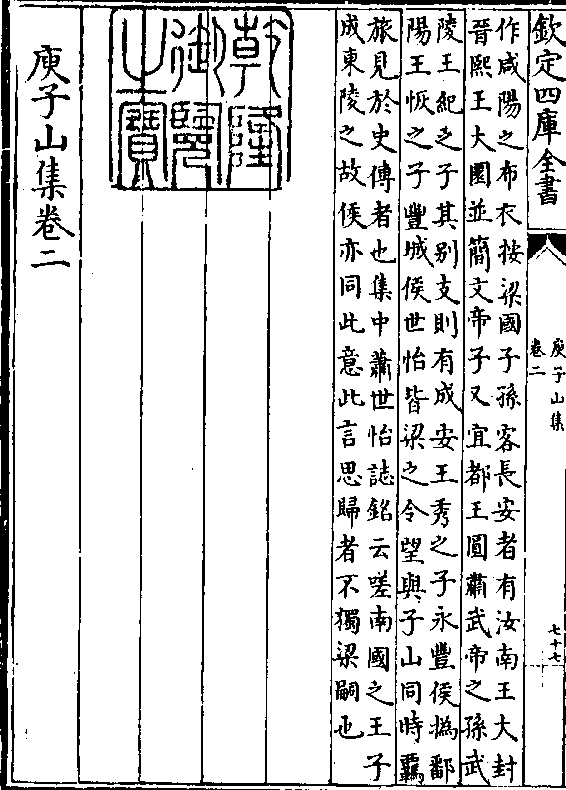 欽定四庫全書
庾子山集
卷二
七十七
作咸陽之布衣按梁國子孫客長安者有汝南王大封
晉熙王大圜並簡文帝子又宜都王圓肅武帝之孫武
陵王紀之子其别支則有成安王秀之子永豐侯撝鄱
陽王恢之子豐城侯世怡皆梁之令望與子山同時羈
旅見於史傳者也集中蕭世怡誌銘云嗟南國之王子
成東陵之故侯亦同此意此言思歸者不獨梁嗣也
乾隆
御覽
之寶
庾子山集卷二